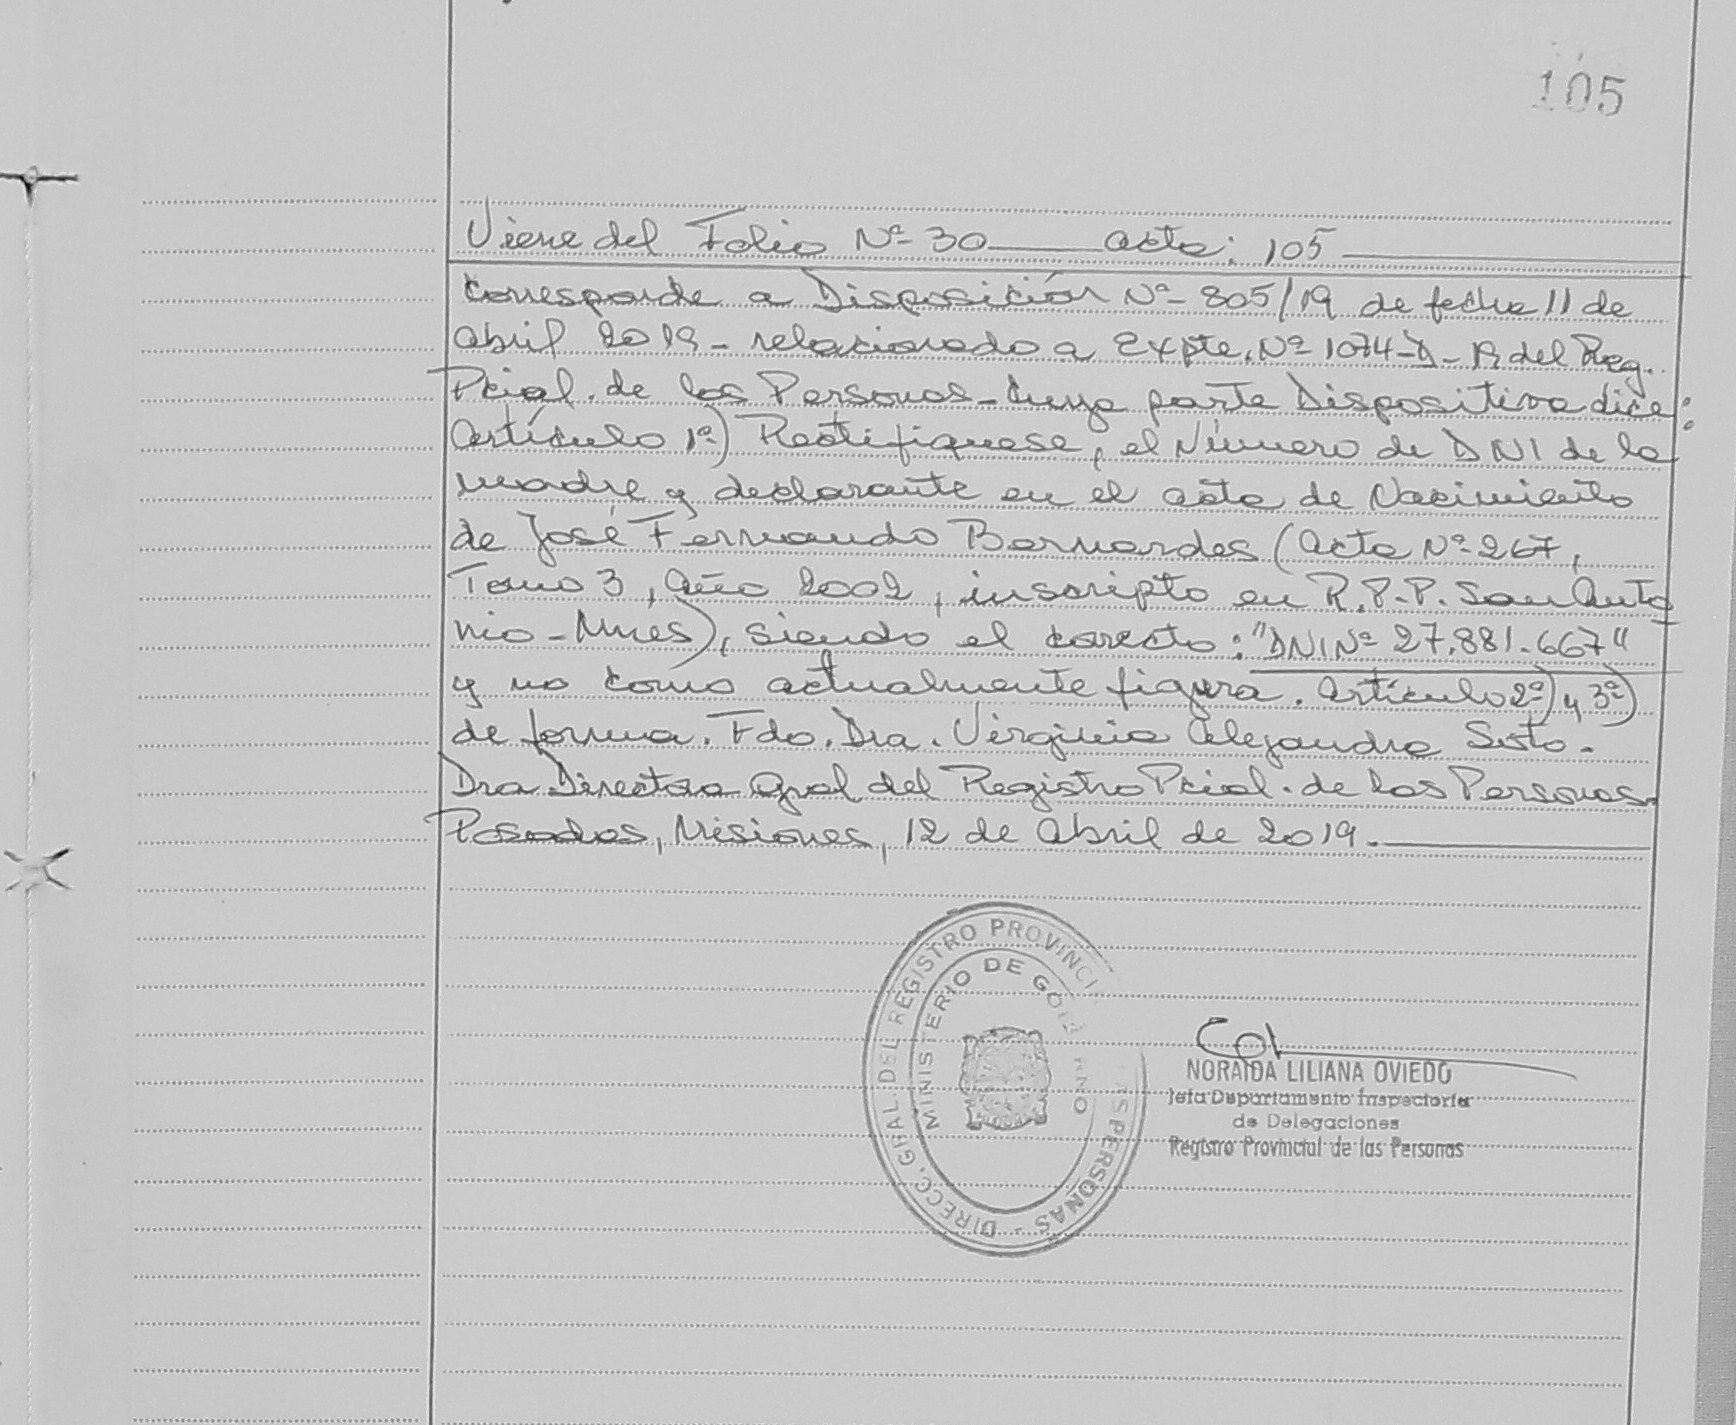 105
Viene del Folio Nº 30 acta: 105
Corresponde a Disposición Nº 805/19 de fecha 11 de
abril 2019 - relacionado a Expte. Nº 1074-D-19 del Reg.
Pcial. de las Personas - Cuya parte Dispositiva dice:
Artículo 1º) Rectifiquese, el Número de DNI de la
madre y declarante en el acta de Nacimiento
de José Fernando Bernardes (Acta Nº 267,
Tomo 3, Año 2002, inscripto en R.P.P. San Anto
nio - Mnes), siendo el correcto: "DNI Nº 27.881.667"
y no como actualmente figura. Artículo 2º) y 3º)
de forma. Fdo. Dra. Virginia Alejandra Sisto.
Dra Directora Gral del Registro Pcial. de las Personas
Posadas, Misiones, 12 de Abril de 2019.
DIRECC. GRAL. DEL REGISTRO PROVINCI AS PERSONAS -
MINISTERIO DE GOBIERNO
NORAIDA LILIANA OVIEDO
Jefa Departamento Inspectoria
de Delegaciones
Registro Provincial de las Personas